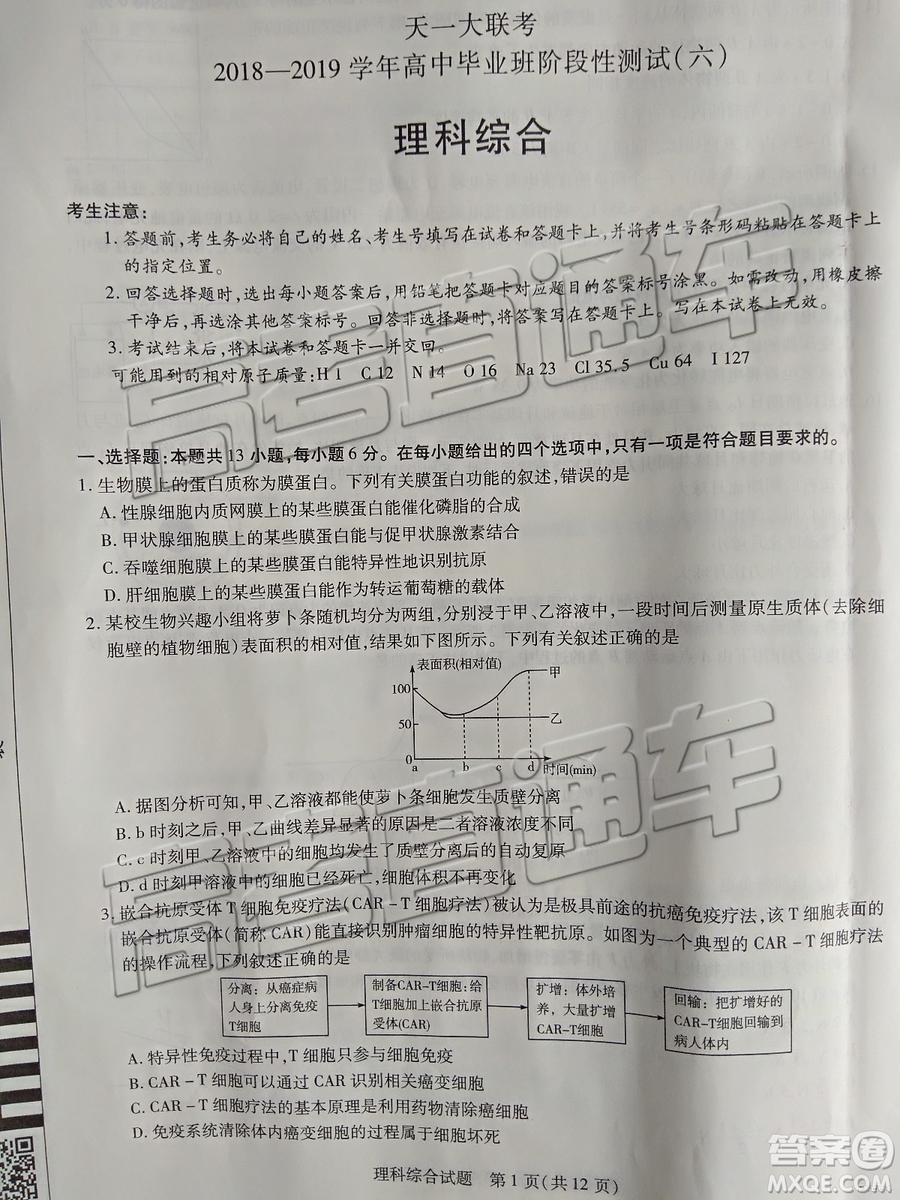 天一大联考
2018—2019学年高中毕业班阶段性测试(六)
理科综合
考生注意:
1. 答题前,考生务必将自己的姓名、考生号填写在试卷和答题卡上,并将考生号条形码粘贴在答题卡上
的指定位置。
2. 回答选择题时,选出每小题答案后,用铅笔把答题卡对应题目的答案标号涂黑。如需改动,用橡皮擦
干净后,再选涂其他答案标号。回答非选择题时,将答案写在答题卡上。写在本试卷上无效。
3. 考试结束后,将本试卷和答题卡一并交回。
可能用到的相对原子质量:H 1 C 12 N 14 O 16 Na 23 Cl 35.5 Cu 64 I 127
一、选择题:本题共13小题,每小题6分。在每小题给出的四个选项中,只有一项是符合题目要求的。
1. 生物膜上的蛋白质称为膜蛋白。下列有关膜蛋白功能的叙述,错误的是
A. 性腺细胞内质网膜上的某些膜蛋白能催化磷脂的合成
B. 甲状腺细胞膜上的某些膜蛋白能与促甲状腺激素结合
C. 吞噬细胞膜上的某些膜蛋白能特异性地识别抗原
D. 肝细胞膜上的某些膜蛋白能作为转运葡萄糖的载体
2. 某校生物兴趣小组将萝卜条随机均分为两组,分别浸于甲、乙溶液中,一段时间后测量原生质体(去除细
胞壁的植物细胞)表面积的相对值,结果如下图所示。下列有关叙述正确的是
表面积(相对值)
100
甲
50
乙
0
a b c d 时间(min)
A. 据图分析可知,甲、乙溶液都能使萝卜条细胞发生质壁分离
B. b时刻之后,甲、乙曲线差异显著的原因是二者溶液浓度不同
C. c时刻甲、乙溶液中的细胞均发生了质壁分离后的自动复原
D. d时刻甲溶液中的细胞已经死亡,细胞体积不再变化
3. 嵌合抗原受体T细胞免疫疗法(CAR-T细胞疗法)被认为是极具前途的抗癌免疫疗法,该T细胞表面的
嵌合抗原受体(简称CAR)能直接识别肿瘤细胞的特异性靶抗原。如图为一个典型的CAR-T细胞疗法
的操作流程,下列叙述正确的是
分离:从癌症病
人身上分离免疫
T细胞
制备CAR-T细胞:给
T细胞加上嵌合抗原
受体(CAR)
扩增:体外培
养,大量扩增
CAR-T细胞
回输:把扩增好的
CAR-T细胞回输到
病人体内
A. 特异性免疫过程中,T细胞只参与细胞免疫
B. CAR-T细胞可以通过CAR识别相关癌变细胞
C. CAR-T细胞疗法的基本原理是利用药物清除癌细胞
D. 免疫系统清除体内癌变细胞的过程属于细胞坏死
理科综合试题 第1页(共12页)
高考直通车
高考直通车
答案圈
MXQE.COM